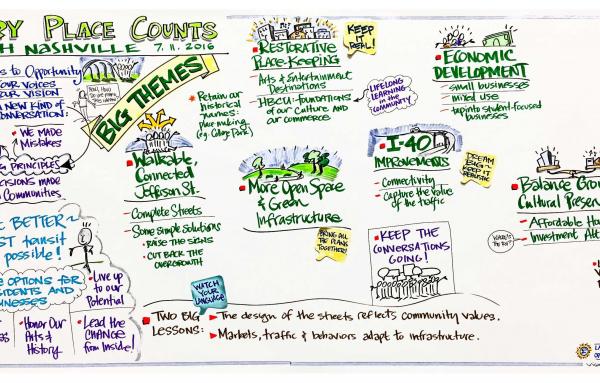 RY PLACE COUNTS
H NASHVILLE 7.11.2016
s to Opportunity
YOUR VOICES
UR VISION
A NEW KIND OF
CONVERSATION:
WE MADE
MISTAKES
PRINCIPLES
CISIONS MADE
Communities
E BETTER~
ST transit
possible!
E OPTIONS FOR
SIDENTS AND
INESSES
Live up
to our
Potential
Honor Our
Arts &
History
Lead the
CHANGE
from Inside!
BIG THEMES
Retain our
historical
names:
place making
(e.g. College Parks)
Walkable
Connected
Jefferson St.
- Complete Streets
- Some Simple Solutions
- RAISE THE SIGNS
- CUT BACK THE
OVERGROWTH
RESTORATIVE
PLACE-KEEPING
- Arts & Entertainment
Destinations
- HBCU: foundations
of our Culture and
our commerce
KEEP
IT
REAL!
LIFELONG
LEARNING
in the
COMMUNITY
More Open Space
& Green
Infrastructure
BRING ALL
THE PLANS
TOGETHER!
ECONOMIC
DEVELOPMENT
- small businesses
- mixed use
- tap into student-focused
businesses
I-40
IMPROVEMENTS
- Connectivity
- Capture the value
of the traffic
DREAM
BIG~
KEEP IT
REALISTIC
KEEP THE
CONVERSATIONS
GOING!
Balance Gro
Cultural Preser
- Affordable Ho
- Investment Alt
WATCH
YOUR
LANGUAGE
TWO BIG
LESSONS:
The design of the streets reflects community values.
Markets, traffic & behaviors adapt to infrastructure.